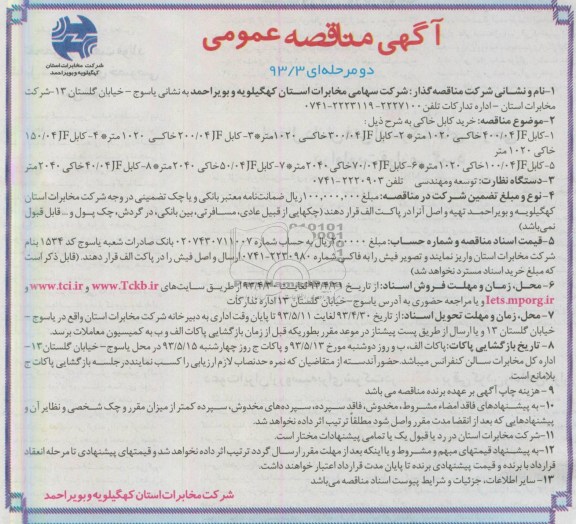 شرکت مخابرات استان
کهگیلویه و بویراحمد
آگهی مناقصه عمومی
دو مرحله‌ای ۹۳/۳
۱-نام و نشانی شرکت مناقصه‌گذار: شرکت سهامی مخابرات استان کهگیلویه و بویراحمد به نشانی یاسوج - خیابان گلستان ۱۳-شرکت
مخابرات استان - اداره تدارکات تلفن ۲۲۲۷۱۰۰-۲۲۲۳۱۱۹-۰۷۴۱
۲-موضوع مناقصه: خرید کابل خاکی به شرح ذیل:
۱-کابل۴۰۰/۰۴ JF خاکی ۱۰۲۰متر * ۲-کابل ۳۰۰/۰۴ JF خاکی ۱۰۲۰متر*۳-کابل ۲۰۰/۰۴ JF خاکی ۱۰۲۰متر *۴-کابل ۱۵۰/۰۴ JF
خاکی ۱۰۲۰ متر
۵-کابل ۱۰۰/۰۴ JF خاکی ۱۰۲۰متر*۶-کابل ۷۰/۰۴ JF خاکی ۲۰۴۰ متر*۷-کابل ۵۰/۰۴ JF خاکی ۲۰۴۰ متر*۸-کابل ۴۰/۰۴ JF خاکی ۲۰۴۰متر
۳-دستگاه نظارت: توسعه و مهندسی تلفن ۲۲۲۰۹۰۳-۰۷۴۱
۴-نوع و مبلغ تضمین شرکت در مناقصه: مبلغ ۱۰۰,۰۰۰,۰۰۰ریال ضمانت‌نامه معتبر بانکی و یا چک تضمینی در وجه شرکت مخابرات استان
کهگیلویه و بویراحمد تهیه و اصل آنرا در پاکت الف قرار دهند (چکهایی از قبیل عادی، مسافرتی، بین بانکی، در گردش، چک پول و ... قابل قبول
نمی‌باشد)
۵-قیمت اسناد مناقصه و شماره حساب: مبلغ ریال به حساب شماره ۰۲۰۷۴۳۰۷۱۱۰۰۷ بانک صادرات شعبه یاسوج کد ۱۵۳۴ بنام
شرکت مخابرات استان واریز نمایند و تصویر فیش را به فاکس شماره ۲۲۳۰۹۸۰-۰۷۴۱ ارسال و اصل فیش را در پاکت الف قرار دهند. (قابل ذکر است
که مبلغ خرید اسناد مسترد نخواهد شد)
۶-محل، زمان و مهلت فروش اسناد: از تاریخ لغایت از طریق سایت‌های www.Tckb.ir و www.tci.ir و
Iets.mporg.ir و یا مراجعه حضوری به آدرس یاسوج-خیابان گلستان ۱۳ اداره تدارکات
۷-محل، زمان و مهلت تحویل اسناد: از تاریخ ۹۳/۴/۳۰ لغایت ۹۳/۵/۱۱ تا پایان وقت اداری به دبیرخانه شرکت مخابرات استان واقع در یاسوج -
خیابان گلستان ۱۳ و یا ارسال از طریق پست پیشتاز در موعد مقرر بطوریکه قبل از زمان بازگشایی پاکات الف و ب به کمیسیون معاملات برسد.
۸-تاریخ بازگشایی پاکات: پاکات الف، ب و روز دوشنبه مورخ ۹۳/۵/۱۳ و پاکات ج روز چهارشنبه ۹۳/۵/۱۵ در محل یاسوج- خیابان گلستان۱۳-
اداره کل مخابرات سالن کنفرانس میباشد. حضور آندسته از متقاضیان که نمره حدنصاب لازم ارزیابی را کسب نمایند در جلسه بازگشایی پاکات ج
بلامانع است.
۹-هزینه چاپ آگهی بر عهده برنده مناقصه می باشد
۱۰-به پیشنهادهای فاقد امضاء مشروط، مخدوش، فاقد سپرده، سپرده‌های مخدوش، سپرده کمتر از میزان مقرر و چک شخصی و نظایر آن و
پیشنهادهایی که بعد از انقضا مدت مقرر واصل شود مطلقاً ترتیب اثر داده نخواهد شد.
۱۱-شرکت مخابرات استان در رد یا قبول یک یا تمامی پیشنهادات مختار است.
۱۲-به پیشنهاد قیمتهای مبهم و مشروط و یا اینکه بعد از مهلت مقرر ارسال گردد ترتیب اثر داده نخواهد شد و قیمتهای پیشنهادی تا مرحله انعقاد
قرارداد با برنده و قیمت پیشنهادی برنده تا پایان مدت قرارداد اعتبار خواهند داشت.
۱۳-سایر اطلاعات، جزئیات و شرایط پیوست اسناد مناقصه می‌باشد
شرکت مخابرات استان کهگیلویه و بویراحمد